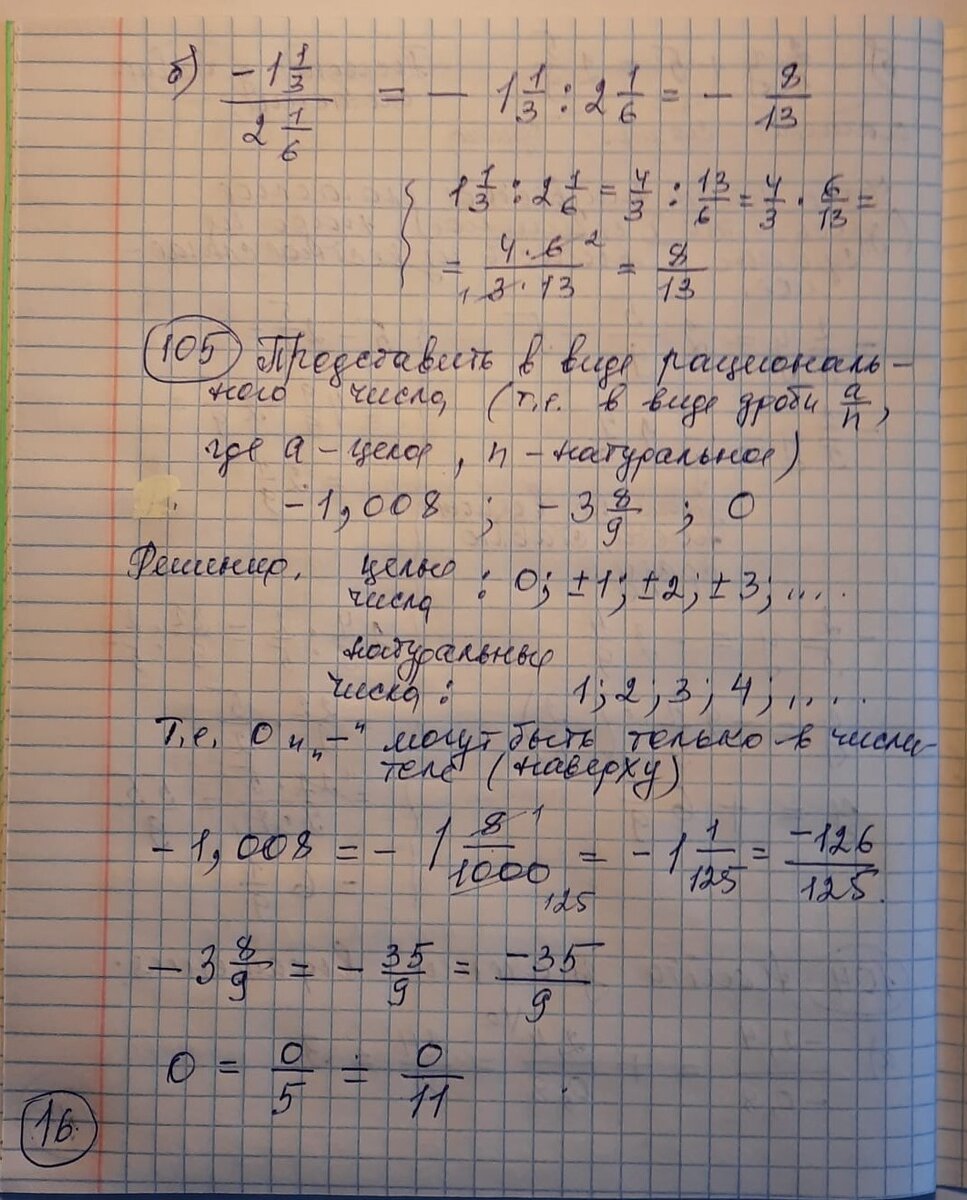 б) -1 1/3 / 2 1/6 = - 1 1/3 : 2 1/6 = - 8/13
1 1/3 : 2 1/6 = 4/3 : 13/6 = 4/3 · 6/13 =
= 4·6 2 / 1 3·13 = 8/13
105 Представить в виде рациональ-
ного числа (т.е. в виде дроби a/n,
где a - целое, n - натуральное)
-1,008 ; -3 8/9 ; 0
Решение. целые числа : 0; ±1; ±2; ±3; ....
натуральные
числа : 1; 2; 3; 4; ....
Т.е. 0 и "-" могут быть только в числи-
теле (наверху)
-1,008 = -1 8 1/1000 125 = -1 1/125 = -126/125.
-3 8/9 = - 35/9 = -35/9
0 = 0/5 = 0/11
16